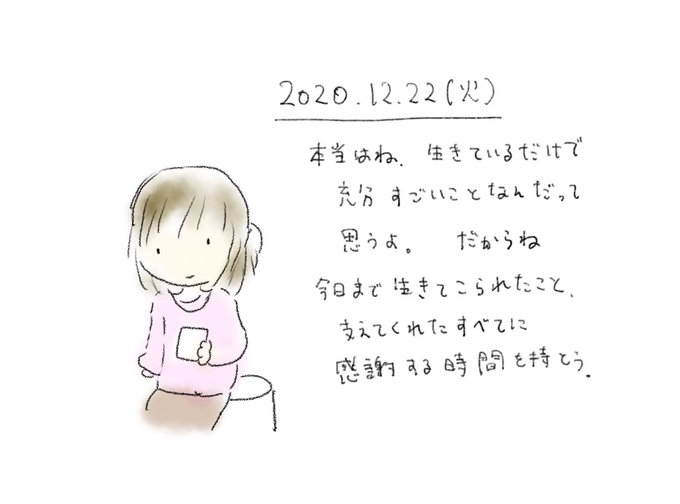 2020.12.22(火)
本当はね、生きているだけで
充分すごいことなんだって
思うよ。 だからね
今日まで生きてこられたこと、
支えてくれたすべてに
感謝する時間を持とう。